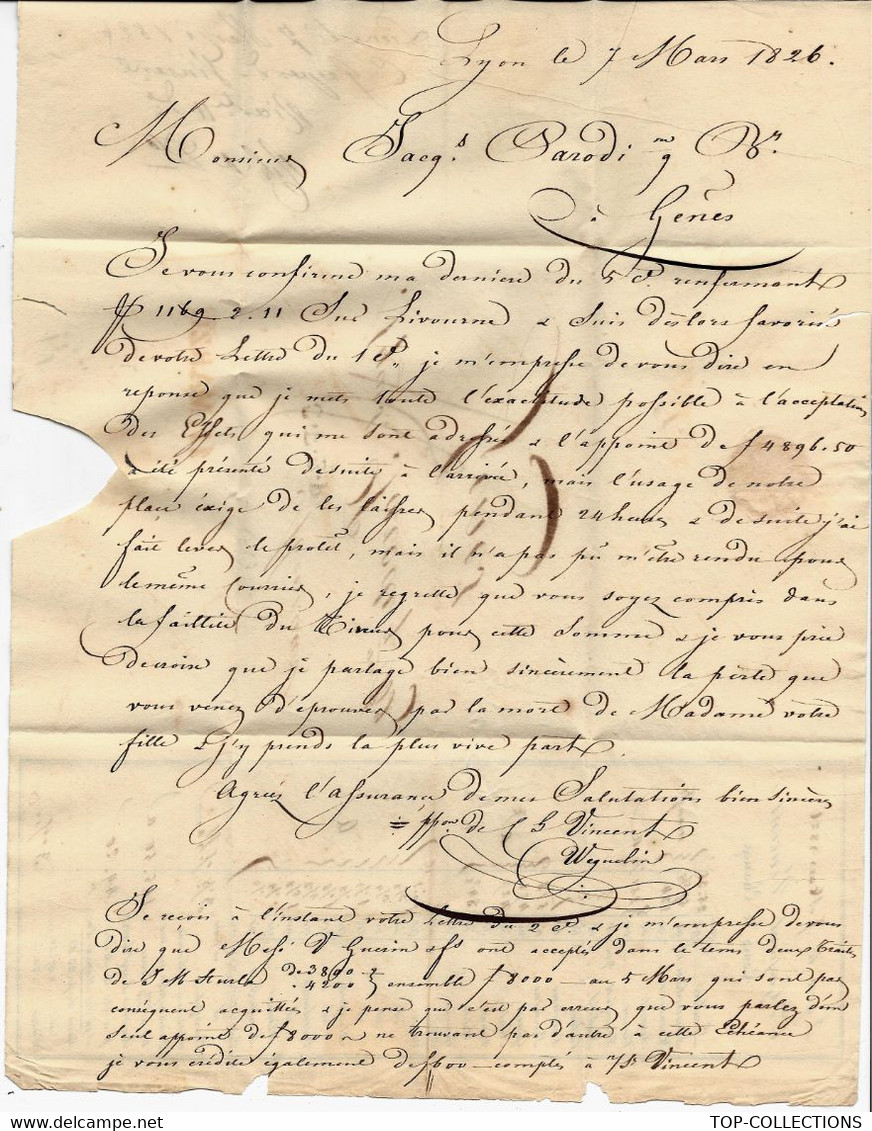 Lyon le 7 Mars 1826.
Monsieur Jacq.s Parodi m q V.r
à Gênes
Je vous confirme ma derniere du 5 Ct. renfermant
1169 2.11 Sur Livourne & Suis deslors favorisé
de votre Lettre du 1 Ct, je m'empresse de vous dire en
reponse que je mets toute l'exactitude possible à l'acceptation
des Effets qui me sont adressés & l'appoint de f 4896.50
a été présenté desuite à l'arrivée, mais l'usage de notre
place éxige de les laisser pendant 24 heures & desuite j'ai
fait lever le protêt, mais il n'a pas pû m'être rendu pour
le même Courrier, je regrette que vous soyez compris dans
la faillite du Tireur pour cette Somme & je vous prie
de croire que je partage bien sincèrement la perte que
vous venez d'éprouver par la mort de Madame votre
fille & j'y prends la plus vive part
Agréez l'assurance de mes Salutations bien sincères
ppon. de Vincent
Weguelin
Je reçois à l'instant votre Lettre du 2 Ct. & je m'empresse de vous
dire que Mess. V Guerin & fs ont acceptés dans le tems deux traites
de J M de 3800
4200 ensemble f 8000 — au 5 Mars qui sont par
conséquent acquittés & je pense que c'est par erreur que vous parlez d'un
seul appoint de f 8000 ne trouvant pas d'autre à cette Echéance
je vous crédite également de f 600 — comptés à Vincent
TOP-COLLECTIONS